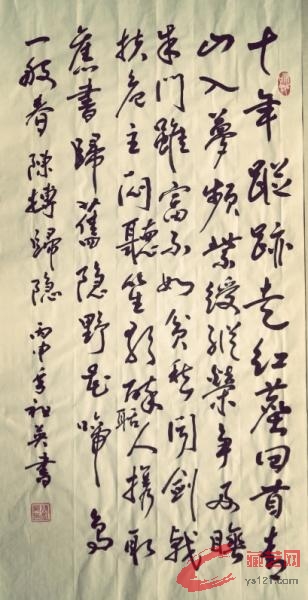 十年蹤跡走紅塵回首青
山入夢頻紫綬縱榮争及睡
朱門雖富不如貧愁聞劍戟
扶危主悶聽笙歌醉聒人攜取
舊書歸舊隱野花啼鳥
一般春 陳摶歸隱 丙申 祖英書